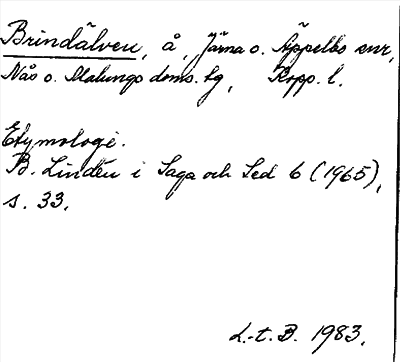 Brindälven, å, Järna o. Äppelbo snr,
Nås o. Malungs doms. tg, Kopp. l.
Etymologi.
B. Lindén i Saga och Sed 6 (1965),
s. 33.
L.-t. B. 1983.